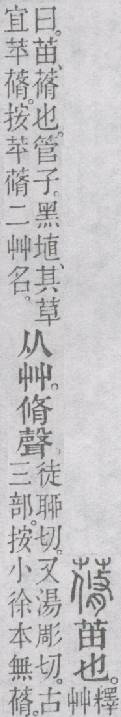 蓨苗也。釋
艸
曰。苗、蓨也。管子。黑埴、其草
宜苹蓨。按苹蓨二艸名。
从艸。脩聲。
徒聊切。又湯彫切。古
三部。按小徐本無蓨。